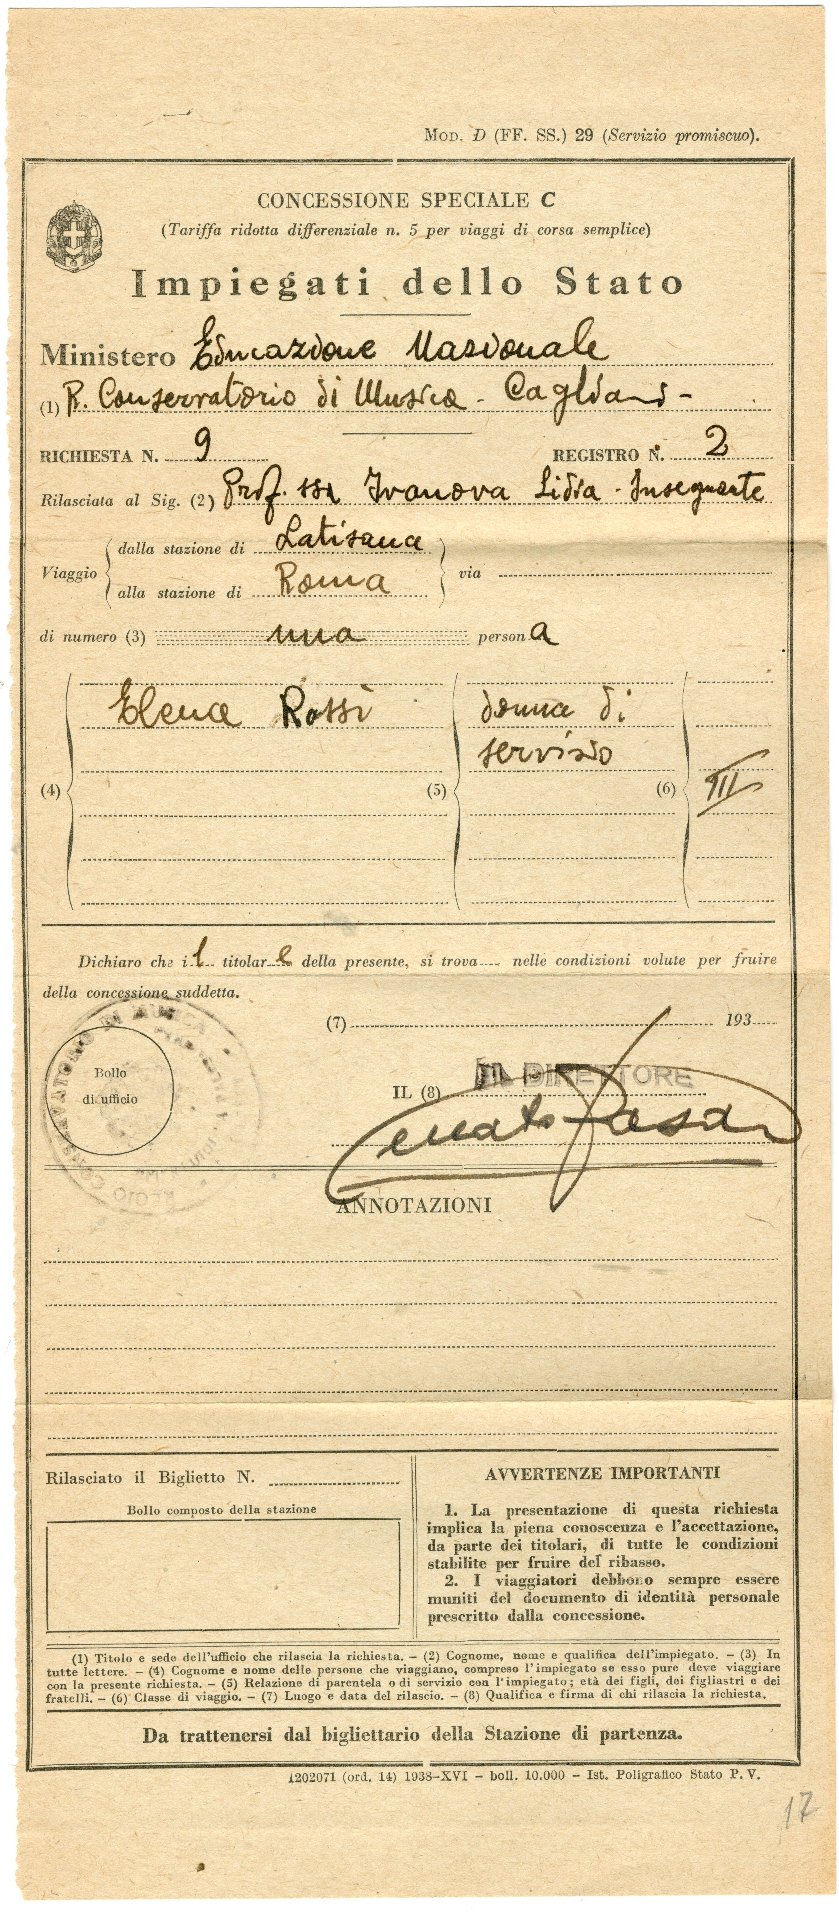 MOD. D (FF. SS.) 29 (Servizio promiscuo).
CONCESSIONE SPECIALE C
(Tariffa ridotta differenziale n. 5 per viaggi di corsa semplice)
Impiegati dello Stato
Ministero Educazione Nazionale
(1) R. Conservatorio di Musica - Cagliari -
RICHIESTA N. 9 REGISTRO N. 2
Rilasciata al Sig. (2) Prof. ssa Ivanova Lidia - Insegnante
dalla stazione di Latisana
Viaggio via
alla stazione di Roma
di numero (3) una persona
Elena Rossi donna di
servizio
(4) (5) (6) III
Dichiaro che il titolare della presente, si trova nelle condizioni volute per fruire
della concessione suddetta.
(7) 193
Bollo
di ufficio
REGIO CONSERVATORIO DI MUSICA
IL (8) IL DIRETTORE
Renato Fasano
ANNOTAZIONI
Rilasciato il Biglietto N.
Bollo composto della stazione
AVVERTENZE IMPORTANTI
1. La presentazione di questa richiesta
implica la piena conoscenza e l'accettazione,
da parte dei titolari, di tutte le condizioni
stabilite per fruire del ribasso.
2. I viaggiatori debbono sempre essere
muniti del documento di identità personale
prescritto dalla concessione.
(1) Titolo e sede dell'ufficio che rilascia la richiesta. – (2) Cognome, nome e qualifica dell'impiegato. – (3) In
tutte lettere. – (4) Cognome e nome delle persone che viaggiano, compreso l'impiegato se esso pure deve viaggiare
con la presente richiesta. – (5) Relazione di parentela o di servizio con l'impiegato; età dei figli, dei figliastri e dei
fratelli. – (6) Classe di viaggio. – (7) Luogo e data del rilascio. – (8) Qualifica e firma di chi rilascia la richiesta.
Da trattenersi dal bigliettario della Stazione di partenza.
1202071 (ord. 14) 1938-XVI – boll. 10.000 – Ist. Poligrafico Stato P. V.
17